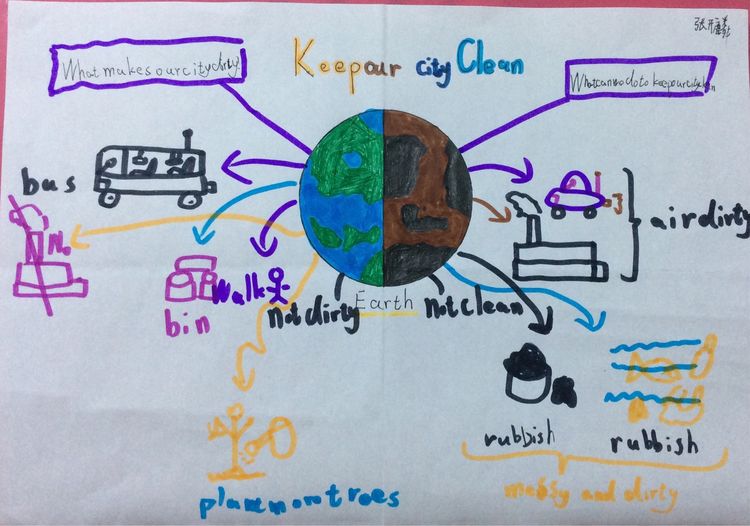 张
Keep our city Clean
What makes our city dirty
What can we do to keep our city clean
bus
No
air dirty
walk
bin
Not dirty
Earth
Not clean
rubbish
rubbish
messy and dirty
plant mom trees